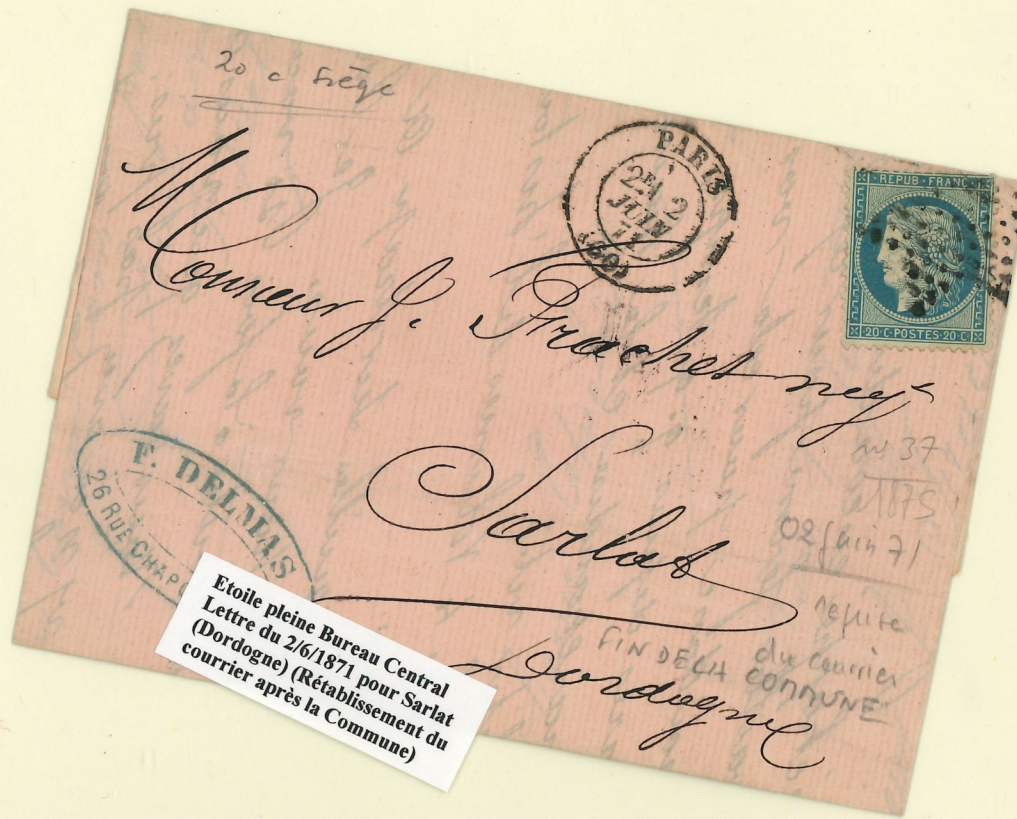 20 c Siège
PARIS
2E/ 2
JUIN
71
(60)
REPUB·FRANC
20·C·POSTES·20·C
Monsieur J. Frachet negt
Sarlat
Dordogne
F. DELMAS
26 RUE CHAP
n° 37
1875
02 juin 71
reprise
du courrier
FIN DE LA COMMUNE
Etoile pleine Bureau Central
Lettre du 2/6/1871 pour Sarlat
(Dordogne) (Rétablissement du
courrier après la Commune)